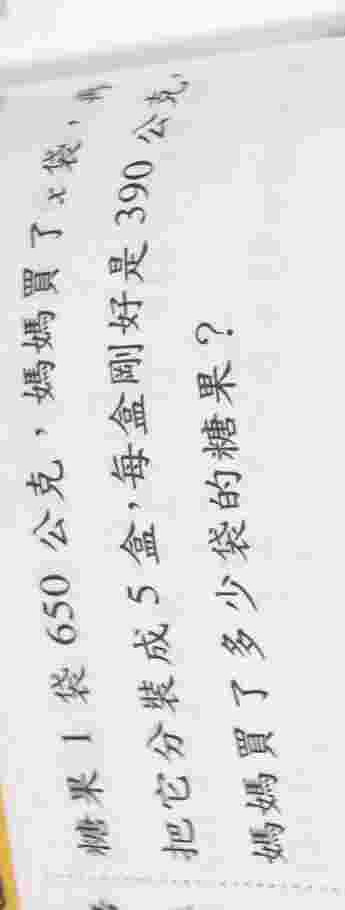 糖果 1 袋 650 公克，媽媽買了 x 袋，將
把它分裝成 5 盒，每盒剛好是 390 公克，
媽媽買了多少袋的糖果？